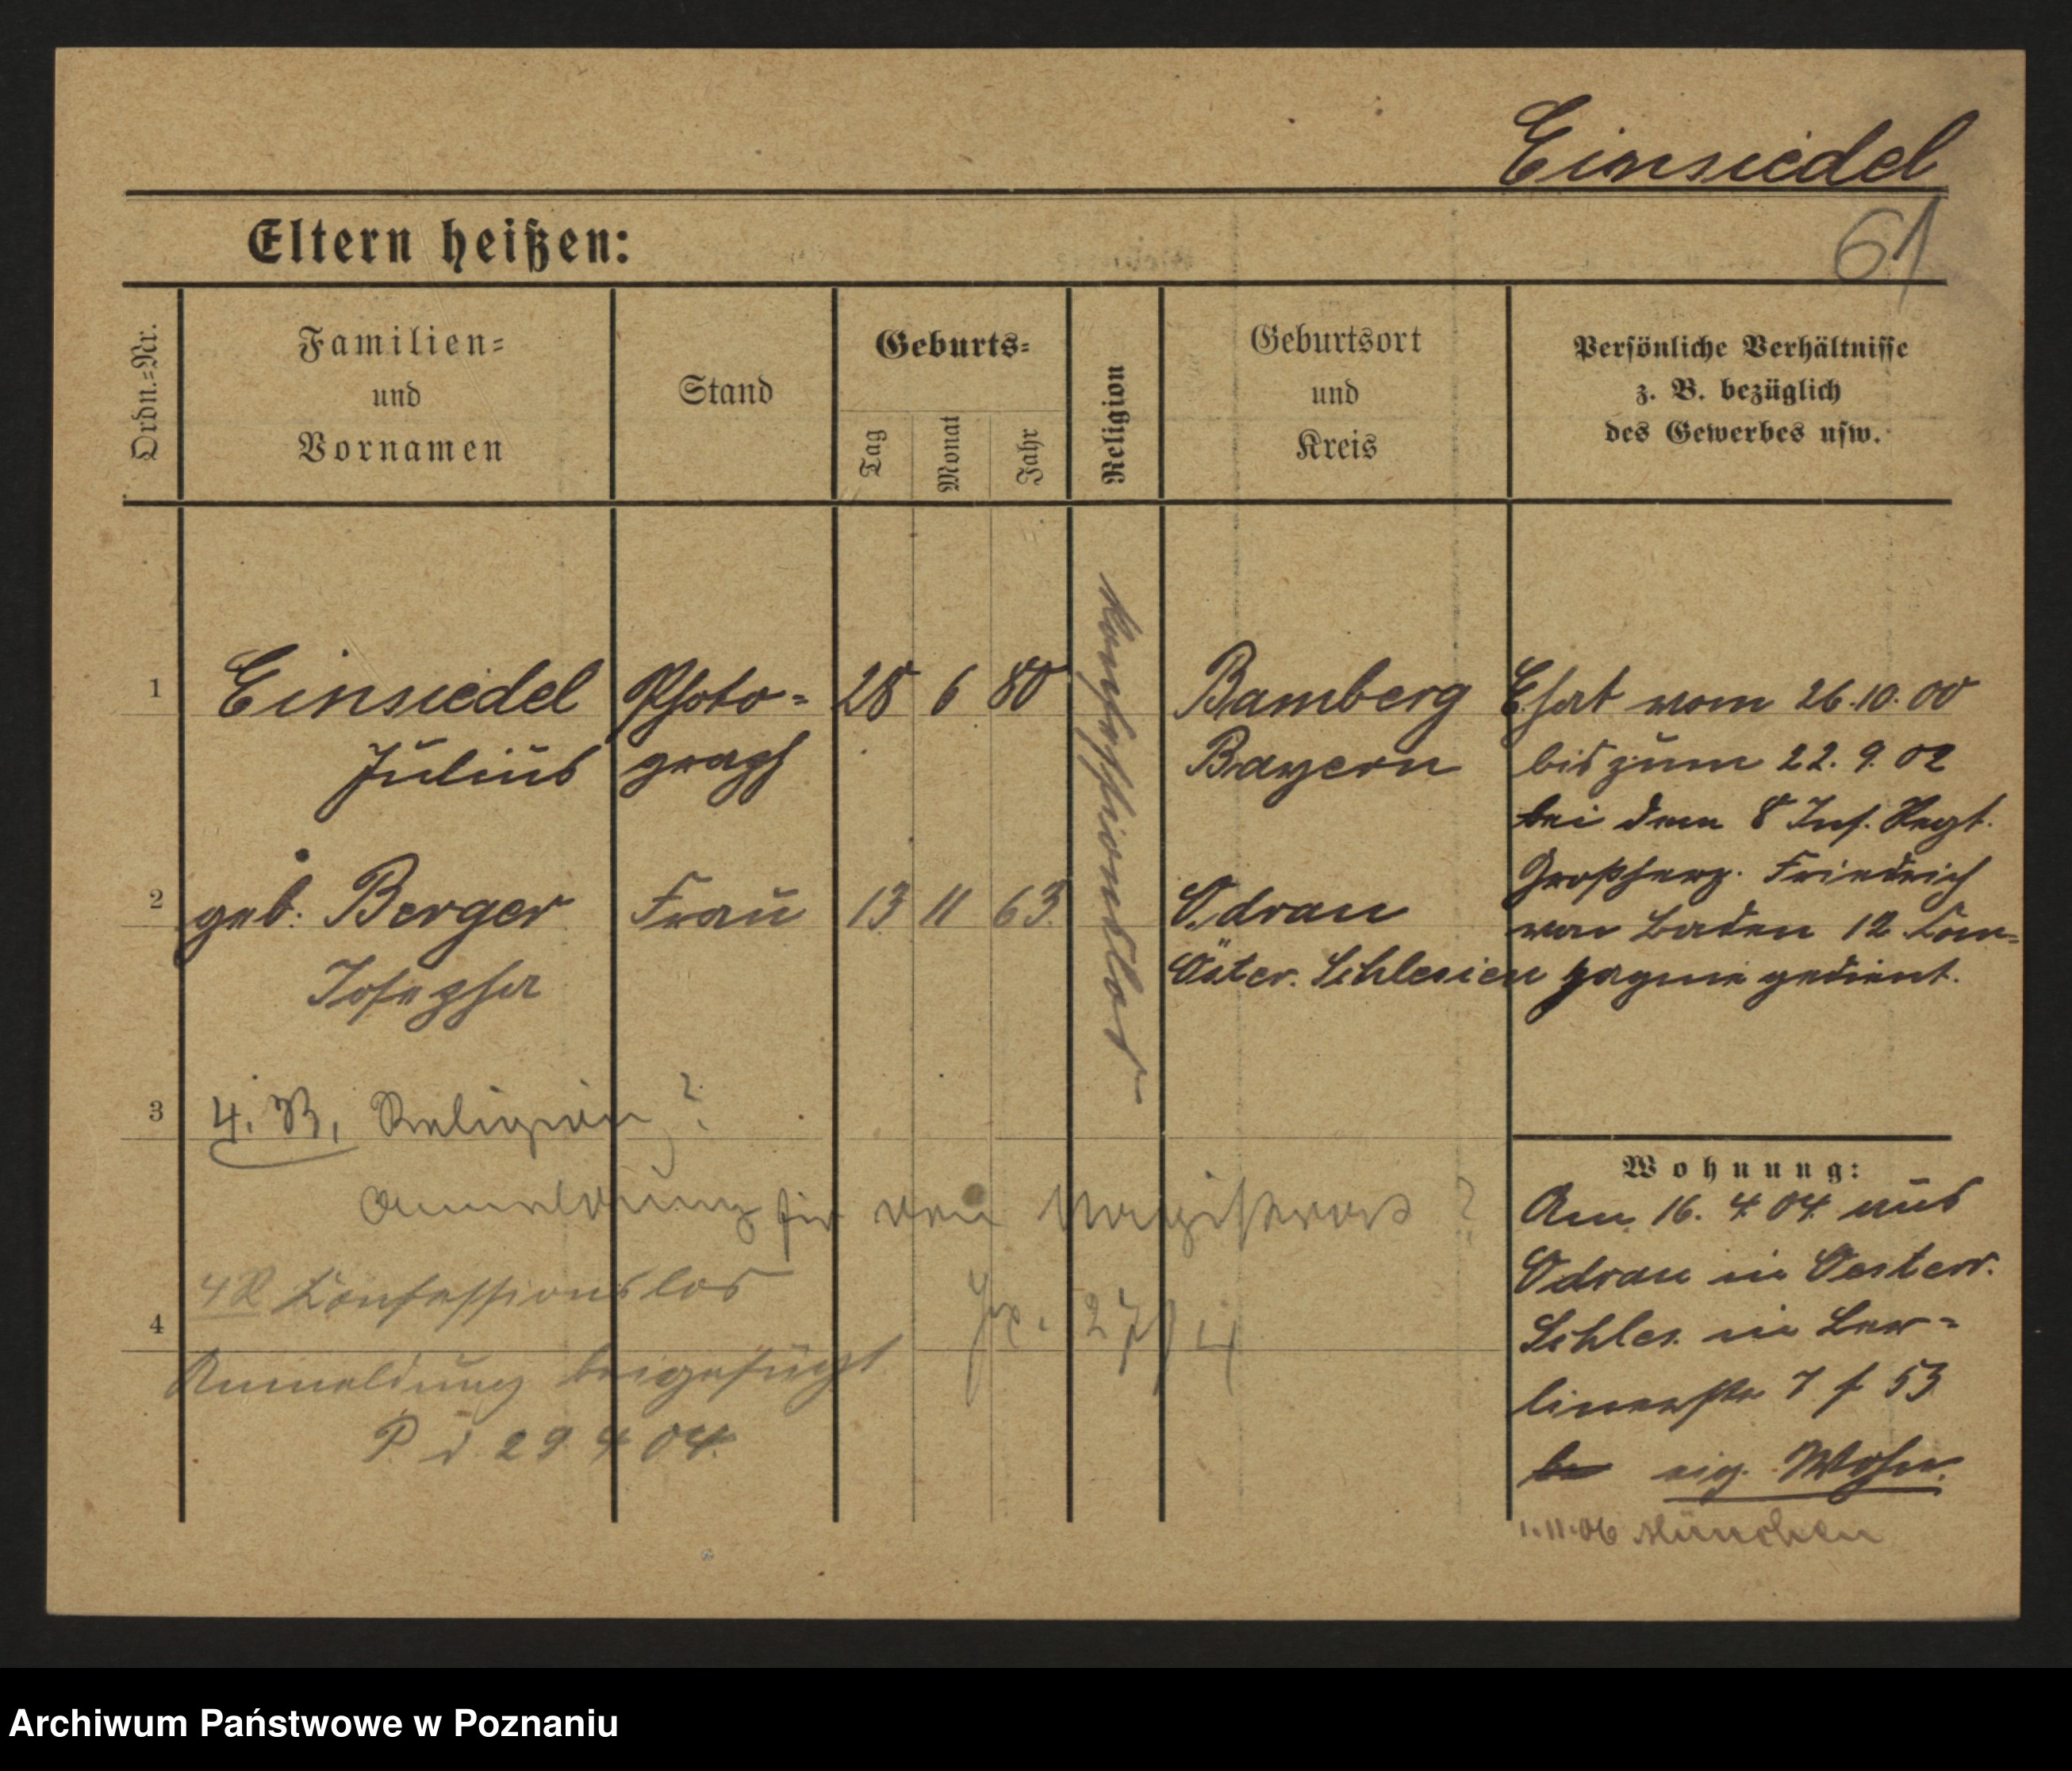 Einsiedel
61
Eltern heißen:
Ordn.-Nr.
Familien-
und
Vornamen
Stand
Geburts-
Tag
Monat
Jahr
Religion
Geburtsort
und
Kreis
Persönliche Verhältnisse
z. B. bezüglich
des Gewerbes usw.
1
Einsiedel
Julius
Photo-
graph
28 6 80
konfessionslos
Bamberg
Bayern
E. hat vom 26.10.00
bis zum 22.9.02
bei dem 8 Inf. Regt.
Großherz. Friedrich
von Baden 12 Com-
pagnie gedient.
2
geb. Berger
Josepha
Frau
13 11 63.
Odrau
Öster. Schlesien
3
4. R. Religion?
Anmeldung für den Magistrat?
4
4R Konfessionslos
27/4
Anmeldung beigefügt
P. d. 29 4 04.
Wohnung:
Am 16. 4. 04. aus
Odrau in Oesterr.
Schles. in Ber-
linerstr 7 f 53
eig. Wohn.
1.11.06 München
Archiwum Państwowe w Poznaniu